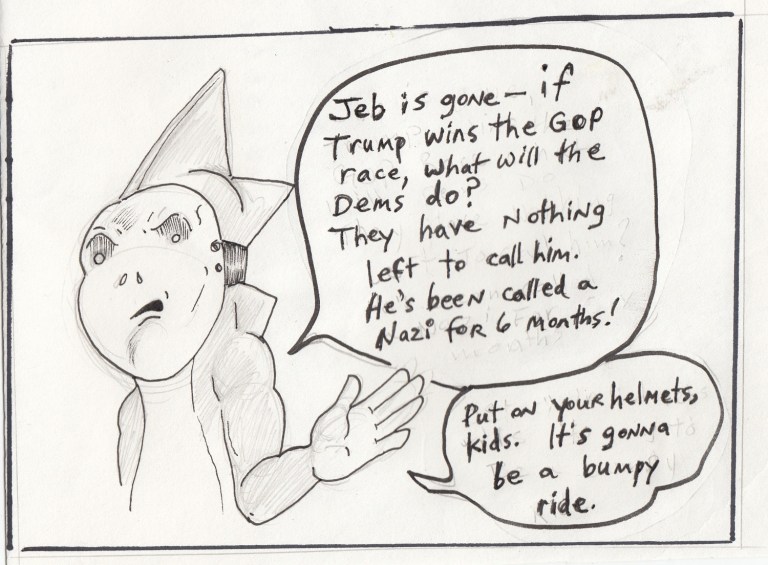 Jeb is gone — if
Trump wins the GOP
race, what will the
Dems do?
They have Nothing
left to call him.
He's been called a
Nazi for 6 months!
Put on your helmets,
kids. It's gonna
be a bumpy
ride.